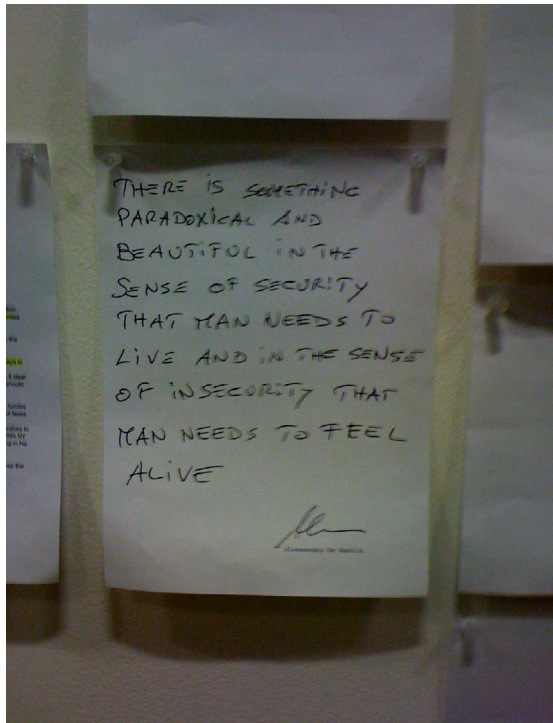 THERE IS SOMETHING
PARADOXICAL AND
BEAUTIFUL IN THE
SENSE OF SECURITY
THAT MAN NEEDS TO
LIVE AND IN THE SENSE
OF INSECURITY THAT
MAN NEEDS TO FEEL
ALIVE
Alessandro De Santis